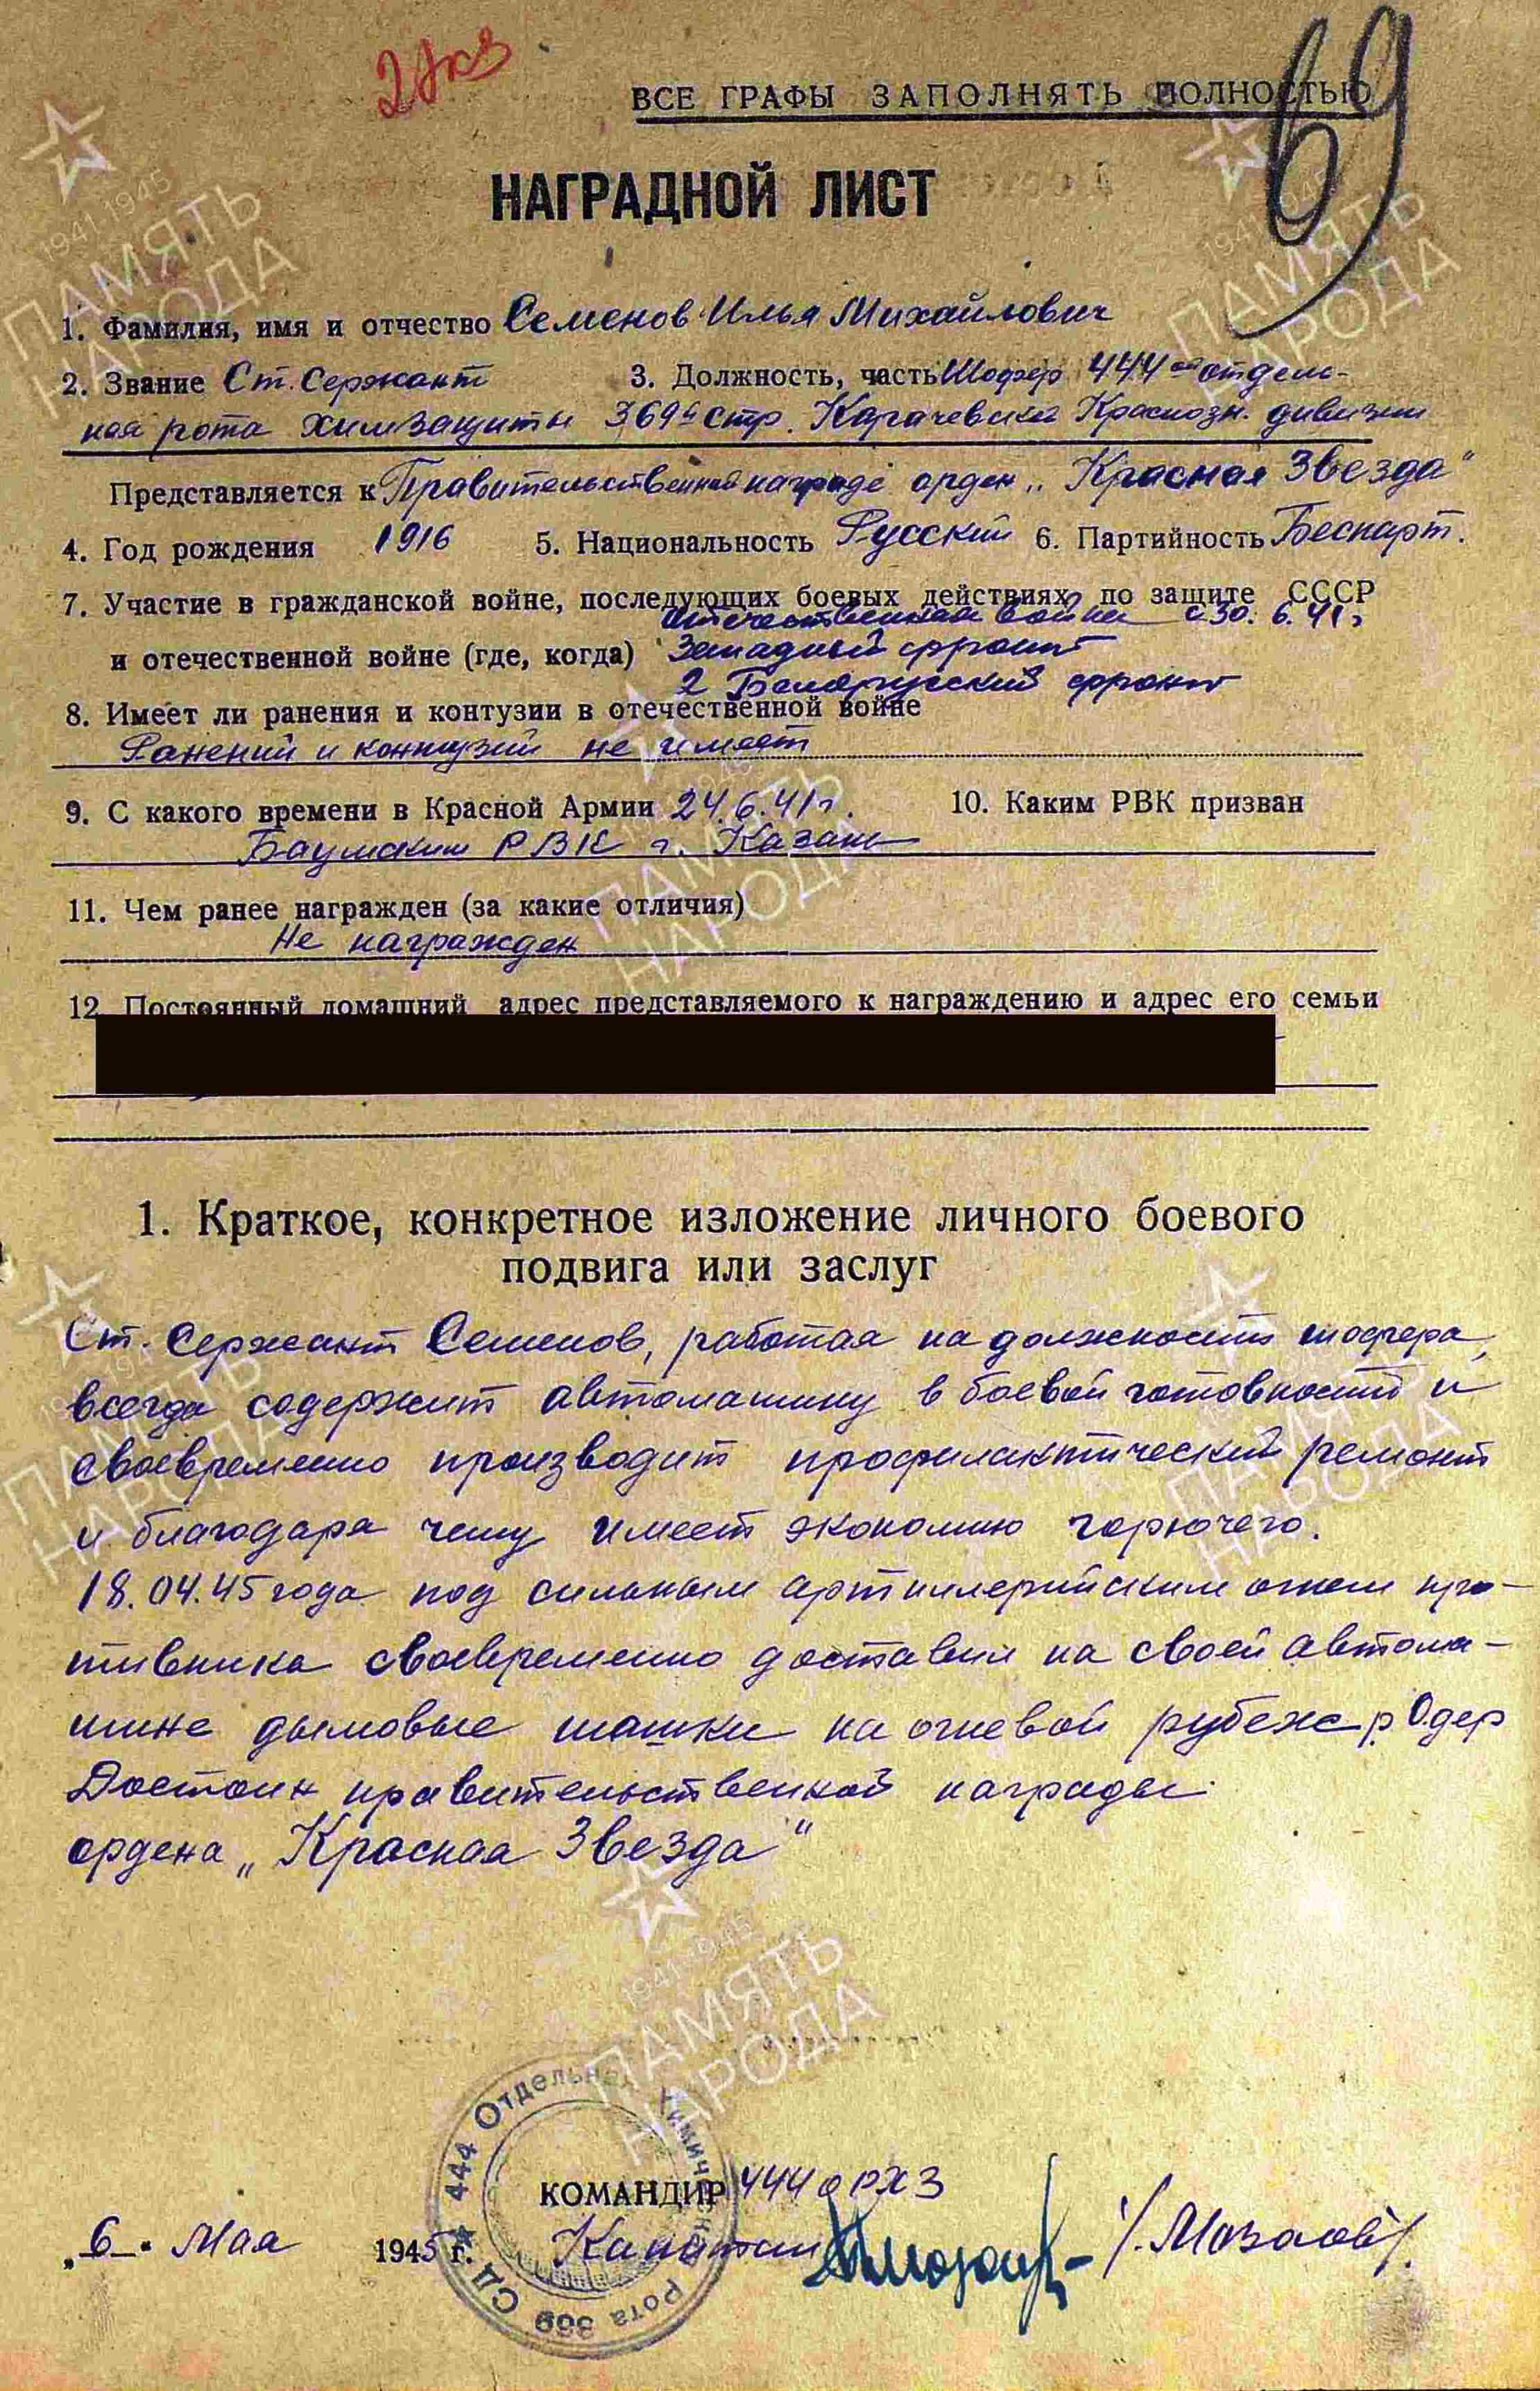 2 Укз
ВСЕ ГРАФЫ ЗАПОЛНЯТЬ ПОЛНОСТЬЮ
69
НАГРАДНОЙ ЛИСТ
1. Фамилия, имя и отчество Семенов Илья Михайлович
2. Звание Ст. Сержант 3. Должность, часть Шофер 444ой отдель-
ная рота химзащиты 369й стр. Карачевской Краснозн. дивизии
Представляется к Правительственной награде орден „Красная Звезда"
4. Год рождения 1916 5. Национальность Русский 6. Партийность Беспарт.
7. Участие в гражданской войне, последующих боевых действиях по защите СССР
Отечественная война с 30.6.41г
и отечественной войне (где, когда) Западный фронт
2 Белорусский фронт
8. Имеет ли ранения и контузии в отечественной войне
Ранений и контузий не имеет
9. С какого времени в Красной Армии 24.6.41г. 10. Каким РВК призван
Бауманским РВК г. Казань
11. Чем ранее награжден (за какие отличия)
Не награжден
12. Постоянный домашний адрес представляемого к награждению и адрес его семьи
1. Краткое, конкретное изложение личного боевого
подвига или заслуг
Ст. Сержант Семенов, работая на должности шофера,
всегда содержит автомашину в боевой готовности и
своевременно производит профилактический ремонт
и благодаря чему имеет экономию горючего.
18.04.45 года под сильным артиллерийским огнем про-
тивника своевременно доставил на своей автома-
шине дымовые шашки на огневой рубеж р. Одер
Достоин правительственной награды
ордена „Красная Звезда"
444 Отдельная Химическая Рота 369 СД
КОМАНДИР 444 ОРХЗ
„6" Мая 1945 г. Капитан /Мозалов/.
1941-1945
ПАМЯТЬ
НАРОДА
1941-1945
ПАМЯТЬ
НАРОДА
1941-1945
ПАМЯТЬ
НАРОДА
1941-1945
ПАМЯТЬ
НАРОДА
1941-1945
ПАМЯТЬ
НАРОДА
1941-1945
ПАМЯТЬ
НАРОДА